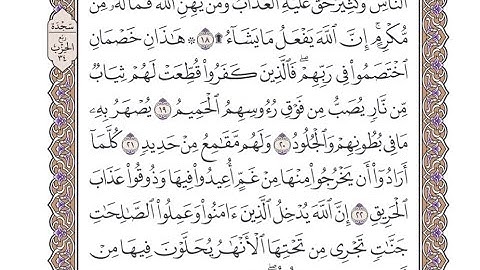 ٱلنَّاسِ وَكَثِيرٌ حَقَّ عَلَيْهِ ٱلْعَذَابُ وَمَن يُهِنِ ٱللَّهُ فَمَا لَهُۥ مِن
سَجْدَة
رُبع
ٱلحِزْبِ
٣٤
مُّكْرِمٍ إِنَّ ٱللَّهَ يَفْعَلُ مَا يَشَآءُ ١٨ ۞ هَٰذَانِ خَصْمَانِ
ٱخْتَصَمُوا۟ فِى رَبِّهِمْ فَٱلَّذِينَ كَفَرُوا۟ قُطِّعَتْ لَهُمْ ثِيَابٌ
مِّن نَّارٍ يُصَبُّ مِن فَوْقِ رُءُوسِهِمُ ٱلْحَمِيمُ ١٩ يُصْهَرُ بِهِۦ
مَا فِى بُطُونِهِمْ وَٱلْجُلُودُ ٢٠ وَلَهُم مَّقَٰمِعُ مِنْ حَدِيدٍ ٢١ كُلَّمَآ
أَرَادُوٓا۟ أَن يَخْرُجُوا۟ مِنْهَا مِنْ غَمٍّ أُعِيدُوا۟ فِيهَا وَذُوقُوا۟ عَذَابَ
ٱلْحَرِيقِ ٢٢ إِنَّ ٱللَّهَ يُدْخِلُ ٱلَّذِينَ ءَامَنُوا۟ وَعَمِلُوا۟ ٱلصَّٰلِحَٰتِ
جَنَّٰتٍ تَجْرِى مِن تَحْتِهَا ٱلْأَنْهَٰرُ يُحَلَّوْنَ فِيهَا مِنْ